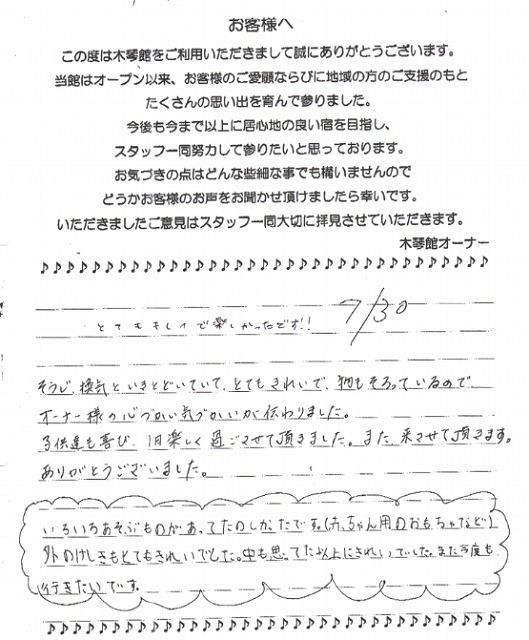 お客様へ
この度は木琴館をご利用いただきまして誠にありがとうございます。
当館はオープン以来、お客様のご愛顧ならびに地域の方のご支援のもと
たくさんの思い出を育んで参りました。
今後も今まで以上に居心地の良い宿を目指し、
スタッフ一同努力して参りたいと思っております。
お気づきの点はどんな些細な事でも構いませんので
どうかお客様のお声をお聞かせ頂けましたら幸いです。
いただきましたご意見はスタッフ一同大切に拝見させていただきます。
木琴館オーナー
7/30
とてもキレイで楽しかったです!!
そうじ、換気といきとどいていて、とてもきれいで、物もそろっているので
オーナー様の心づかい気づかいが伝わりました。
子供達も喜び、1日楽しく過ごさせて頂きました。また来させて頂きます。
ありがとうございました。
いろいろあそぶものがあってたのしかったです。(赤ちゃん用のおもちゃなど)
外のけしきもとてもきれいでした。中も思ってた以上にきれいでした。また今度も
行きたいです。